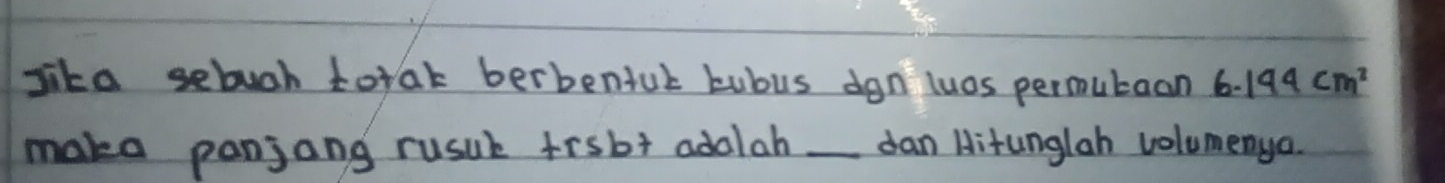 Jika sebuah kotak berbentuk kubus dgn luas permukaan 6.144 cm²
maka panjang rusuk trsbt adalah __ dan Hitunglah volumenya.